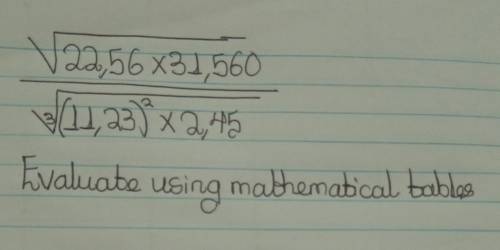 √22,56 × 31,560
∛(11,23)² × 2,45
Evaluate using mathematical tables